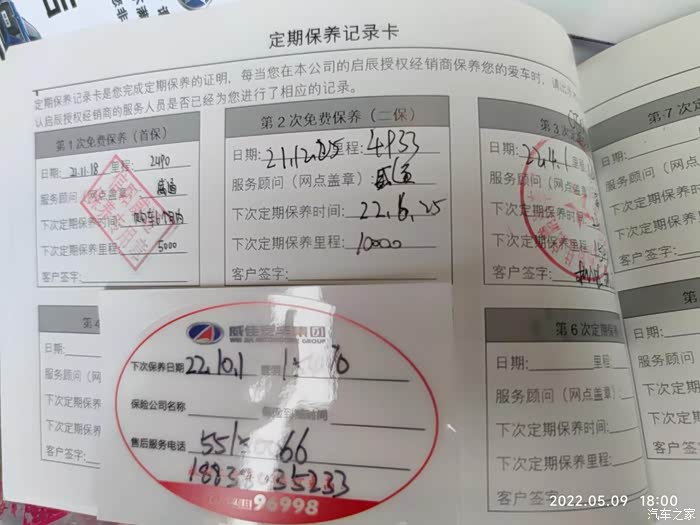 定期保养记录卡
定期保养记录卡是您完成定期保养的证明，每当您在本公司的启辰授权经销商保养您的爱车时，请出
认启辰授权经销商的服务人员是否已经为您进行了相应的记录。
第1次免费保养（首保）
日期: 21.11.18 里程: 2490
服务顾问（网点盖章） 威通
下次定期保养时间:
下次定期保养里程: 5000
客户签字:
第2次免费保养（二保）
日期: 21.12.25 里程: 4933
服务顾问（网点盖章）:
下次定期保养时间: 22.6.25
下次定期保养里程: 10000
客户签字:
第3次定
日期: 22.4.1 里程
服务顾问（网点盖章）
下次定期保养时间
下次定期保养里程:
客户签字:
第7次
日期:
服务顾问（网
下次定期保养
下次定期保养
客户签字:
第4
日期:
服务顾问（网
下次定期保
下次定期保
客户签字:
威佳汽车集团
WEIJIA AUTOMOBILE GROUP
下次保养日期 22.10.1
保险公司名称
售后服务电话
96998
第6次定期保养
日期: 里程:
服务顾问（网点盖章）:
下次定期保养时间:
下次定期保养里程:
客户签字:
第
日期:
服务顾问
下次定期
下次定期
客户签字
2022.05.09 18:00
汽车之家